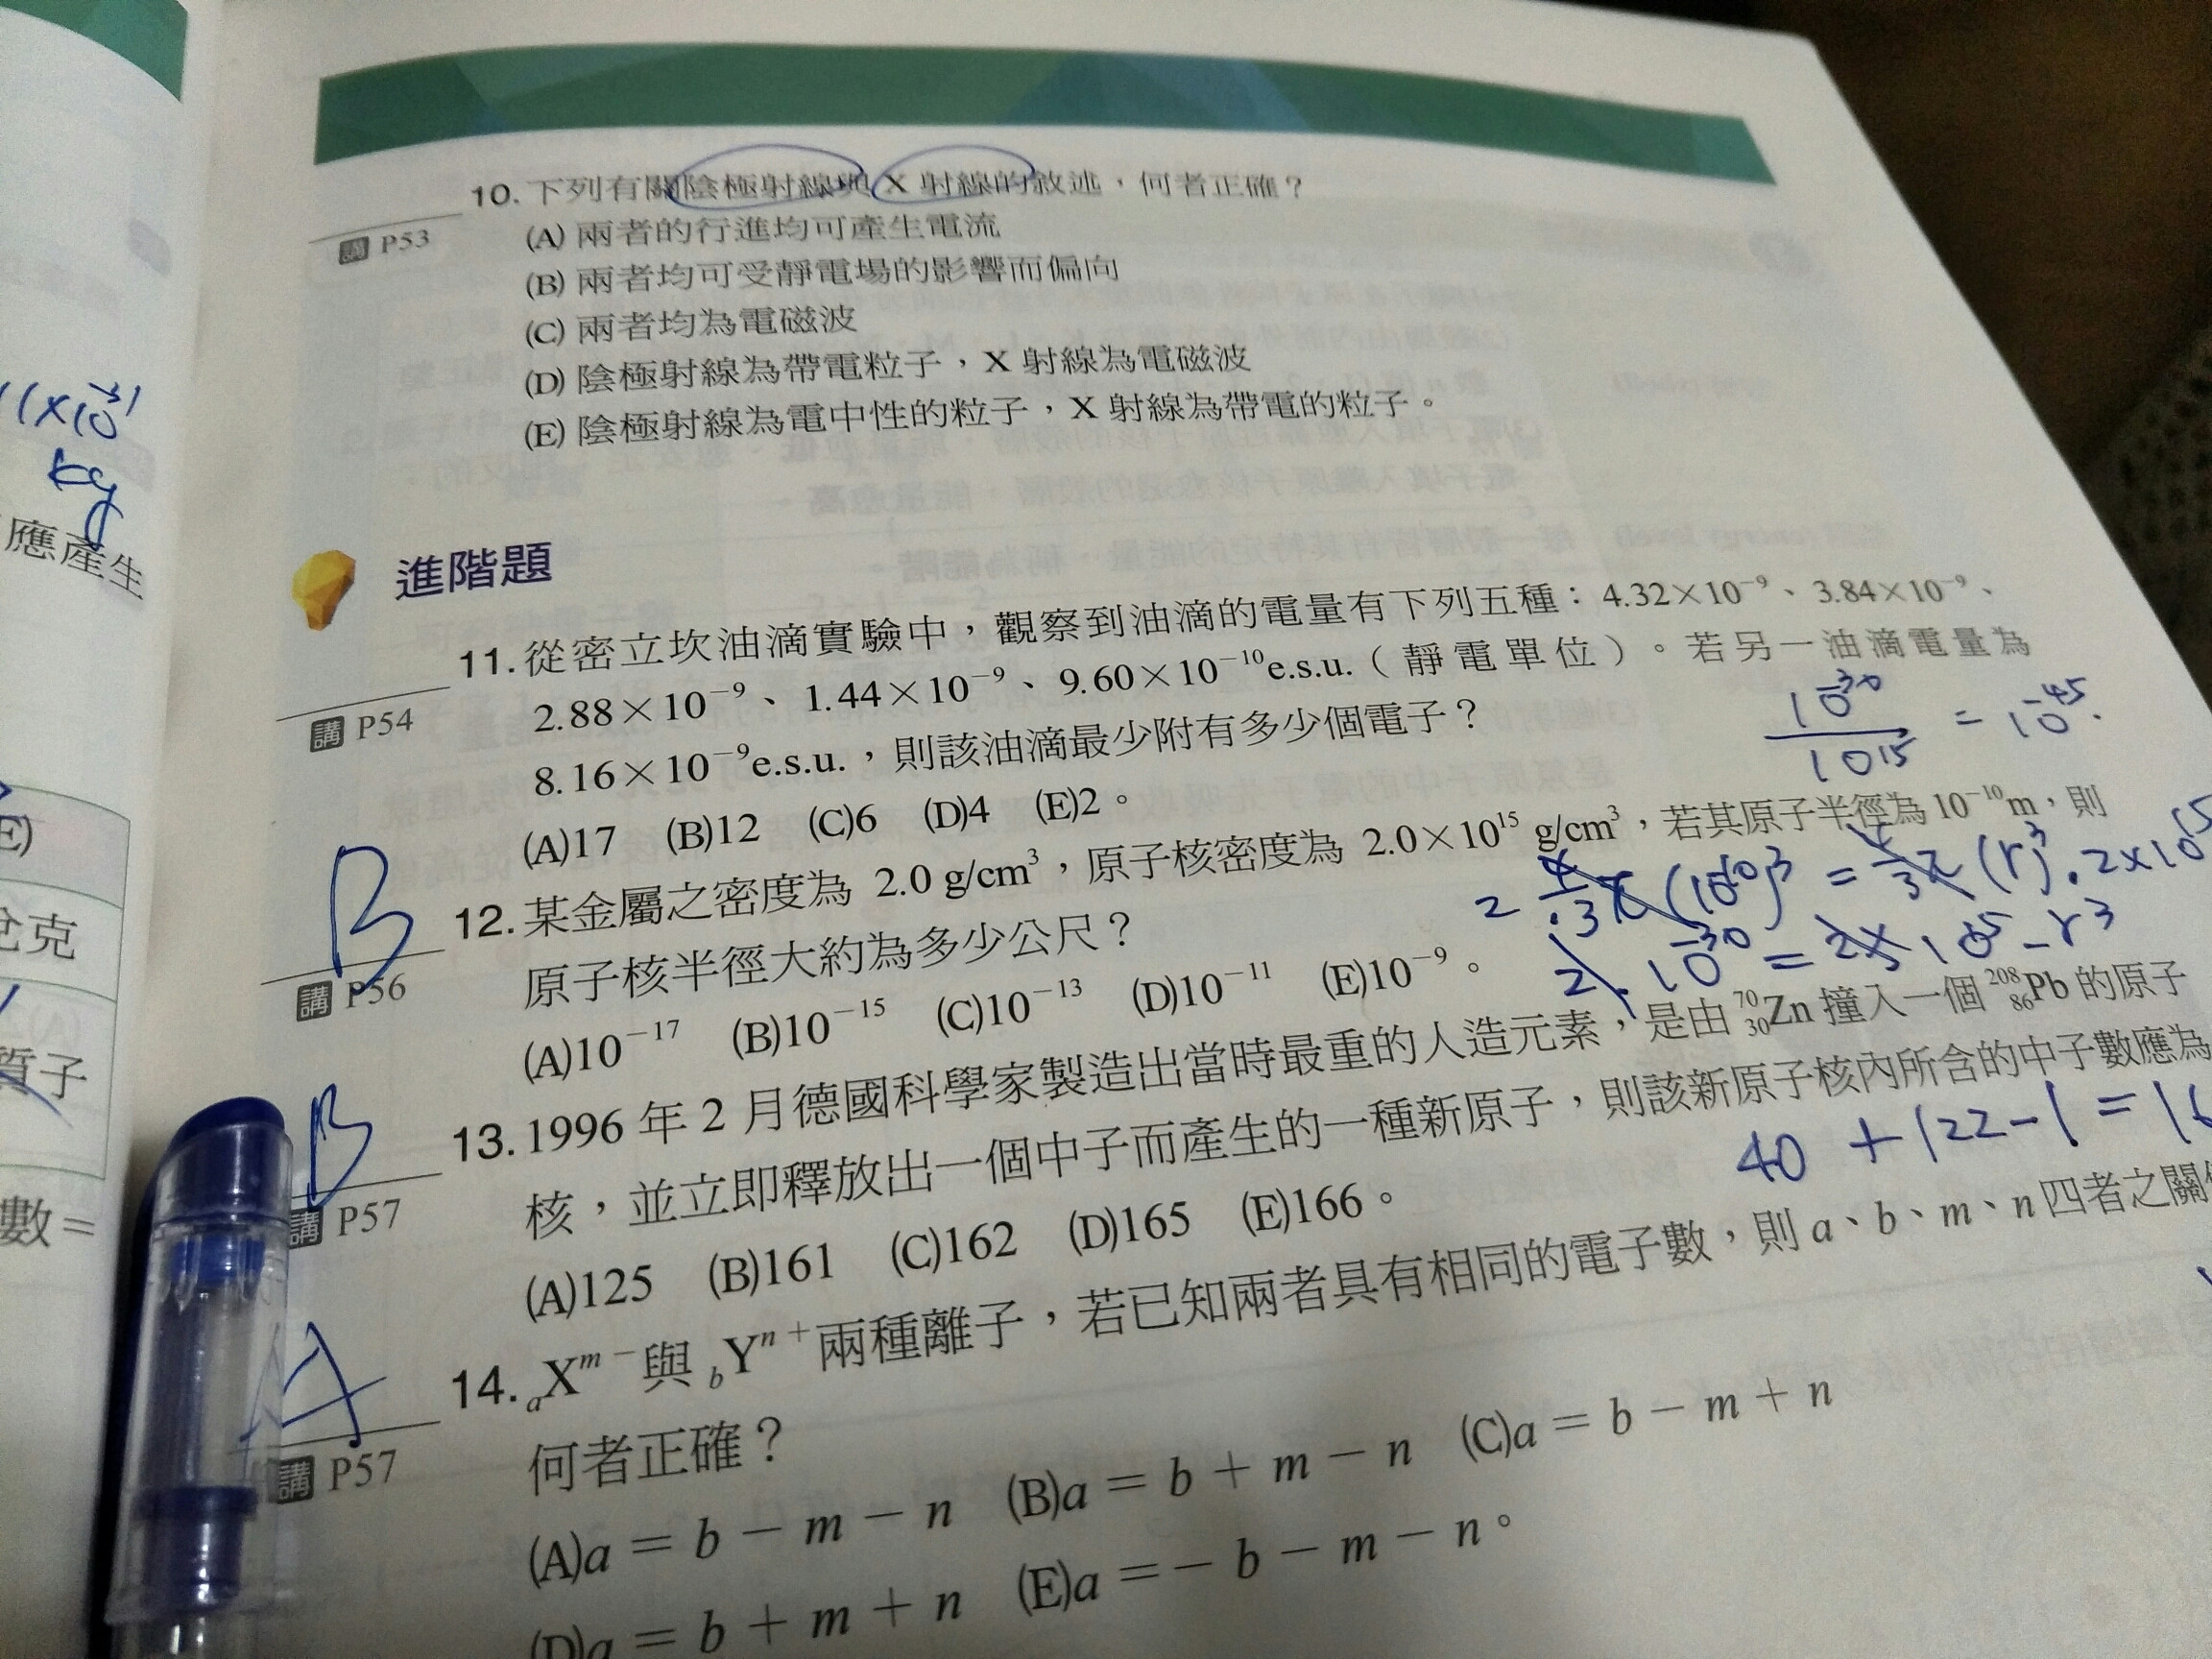 10. 下列有關陰極射線與 X 射線的敘述，何者正確？
講 P53
(A) 兩者的行進均可產生電流
(B) 兩者均可受靜電場的影響而偏向
(C) 兩者均為電磁波
(D) 陰極射線為帶電粒子，X 射線為電磁波
(E) 陰極射線為電中性的粒子，X 射線為帶電的粒子。
進階題
11. 從密立坎油滴實驗中，觀察到油滴的電量有下列五種：4.32×10⁻⁹、3.84×10⁻⁹、
2.88×10⁻⁹、1.44×10⁻⁹、9.60×10⁻¹⁰e.s.u.（靜電單位）。若另一油滴電量為
講 P54
8.16×10⁻⁹e.s.u.，則該油滴最少附有多少個電子？
(A)17 (B)12 (C)6 (D)4 (E)2。
10⁻³⁰
10¹⁵
= 10⁻⁴⁵.
B
12. 某金屬之密度為 2.0 g/cm³，原子核密度為 2.0×10¹⁵ g/cm³，若其原子半徑為 10⁻¹⁰m，則
講 P56
原子核半徑大約為多少公尺？
(A)10⁻¹⁷ (B)10⁻¹⁵ (C)10⁻¹³ (D)10⁻¹¹ (E)10⁻⁹。
B
13. 1996 年 2 月德國科學家製造出當時最重的人造元素，是由 ⁷⁰₃₀Zn 撞入一個 ²⁰⁸₈₆Pb 的原子
講 P57
核，並立即釋放出一個中子而產生的一種新原子，則該新原子核內所含的中子數應為
40 + 122 - 1 = 16
(A)125 (B)161 (C)162 (D)165 (E)166。
A
14. ₐXᵐ⁻ 與 bYⁿ⁺ 兩種離子，若已知兩者具有相同的電子數，則 a、b、m、n 四者之關
講 P57
何者正確？
(A)a = b − m − n (B)a = b + m − n (C)a = b − m + n
(D)a = b + m + n (E)a = − b − m − n。
kg
應產生
E)
克
質子
數 =